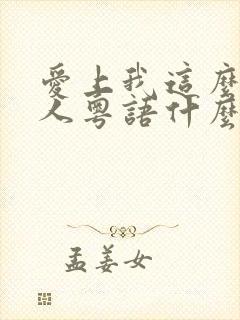 愛上我這麼
人粵語什麼
孟姜女